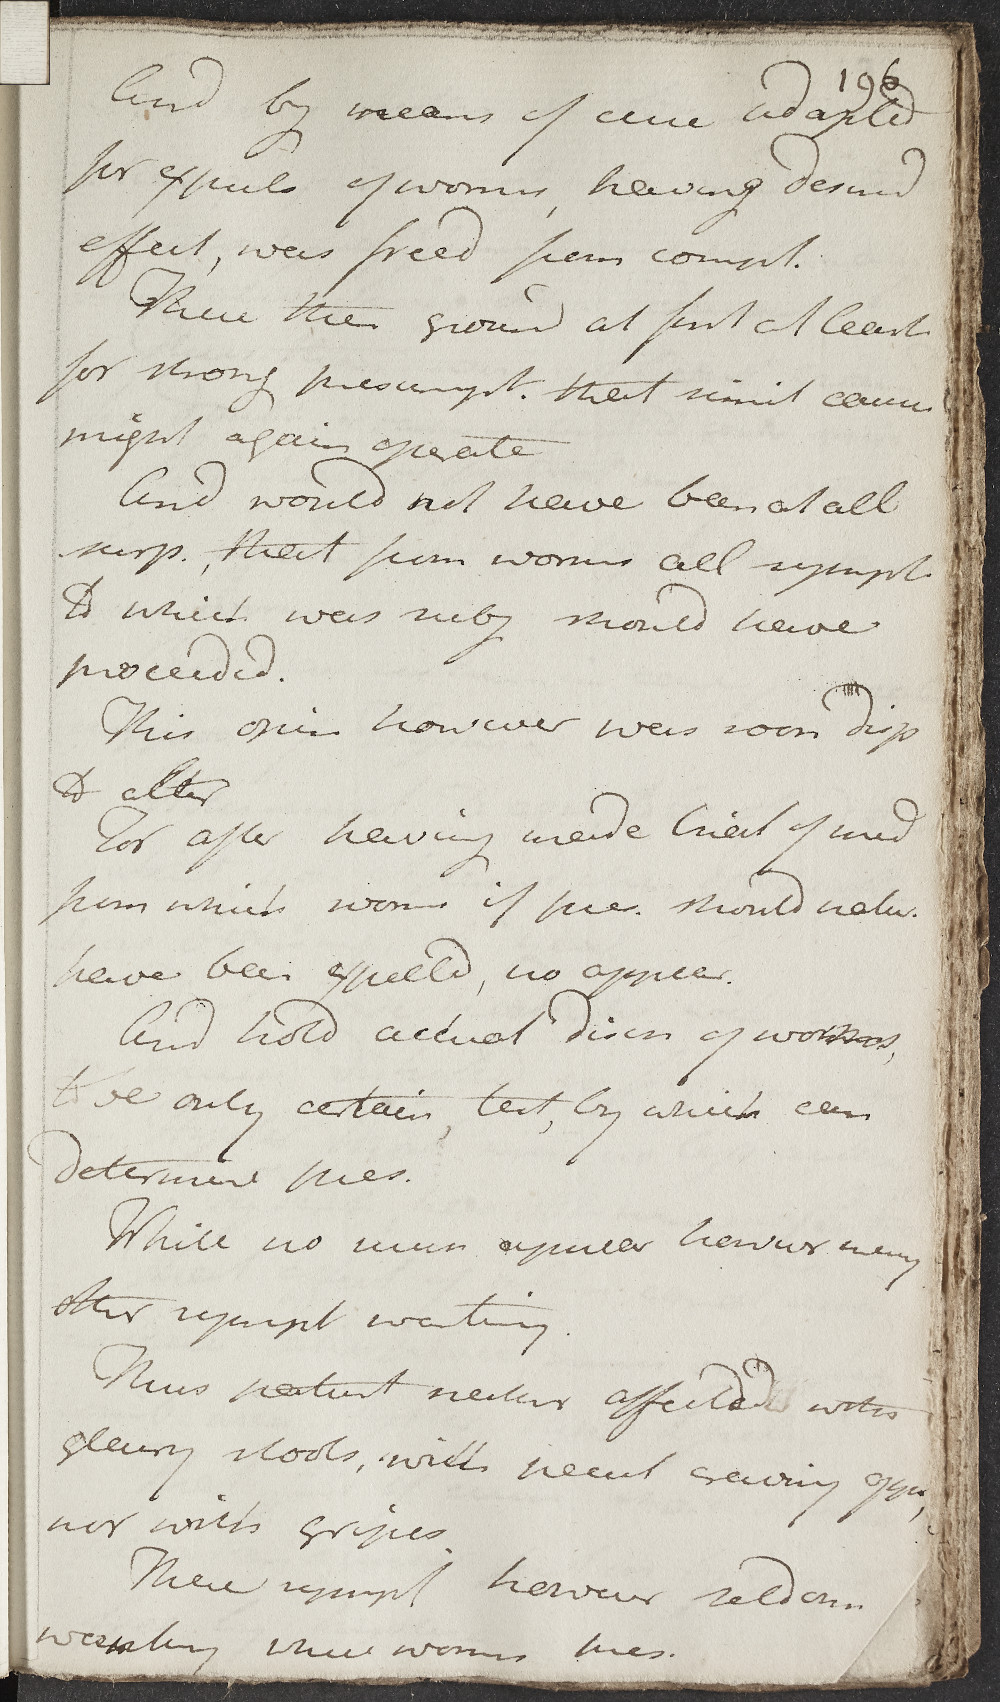 196
And by means of cure adapted
for expuls of worms, having desired
effect, was freed from compt.
There then ground at first at least
for strong presumpt. that simil cause
might again operate
And would not have been at all
surp., that from worms all sympt
to which was subj should have
proceeded.
This opin however was soon disp
to alter
For after having made trial of med
from which worms if pres. should natur.
have been expelled, no appear.
And hold actual discn of worms,
to be only certain, test, by which can
determine pres.
While no worm appear however many
other sympt wanting.
Thus patient neither affected with
gleary stools, with pecul craving appt,
nor with gripes.
These sympt however seldom
wanting where worms pres.